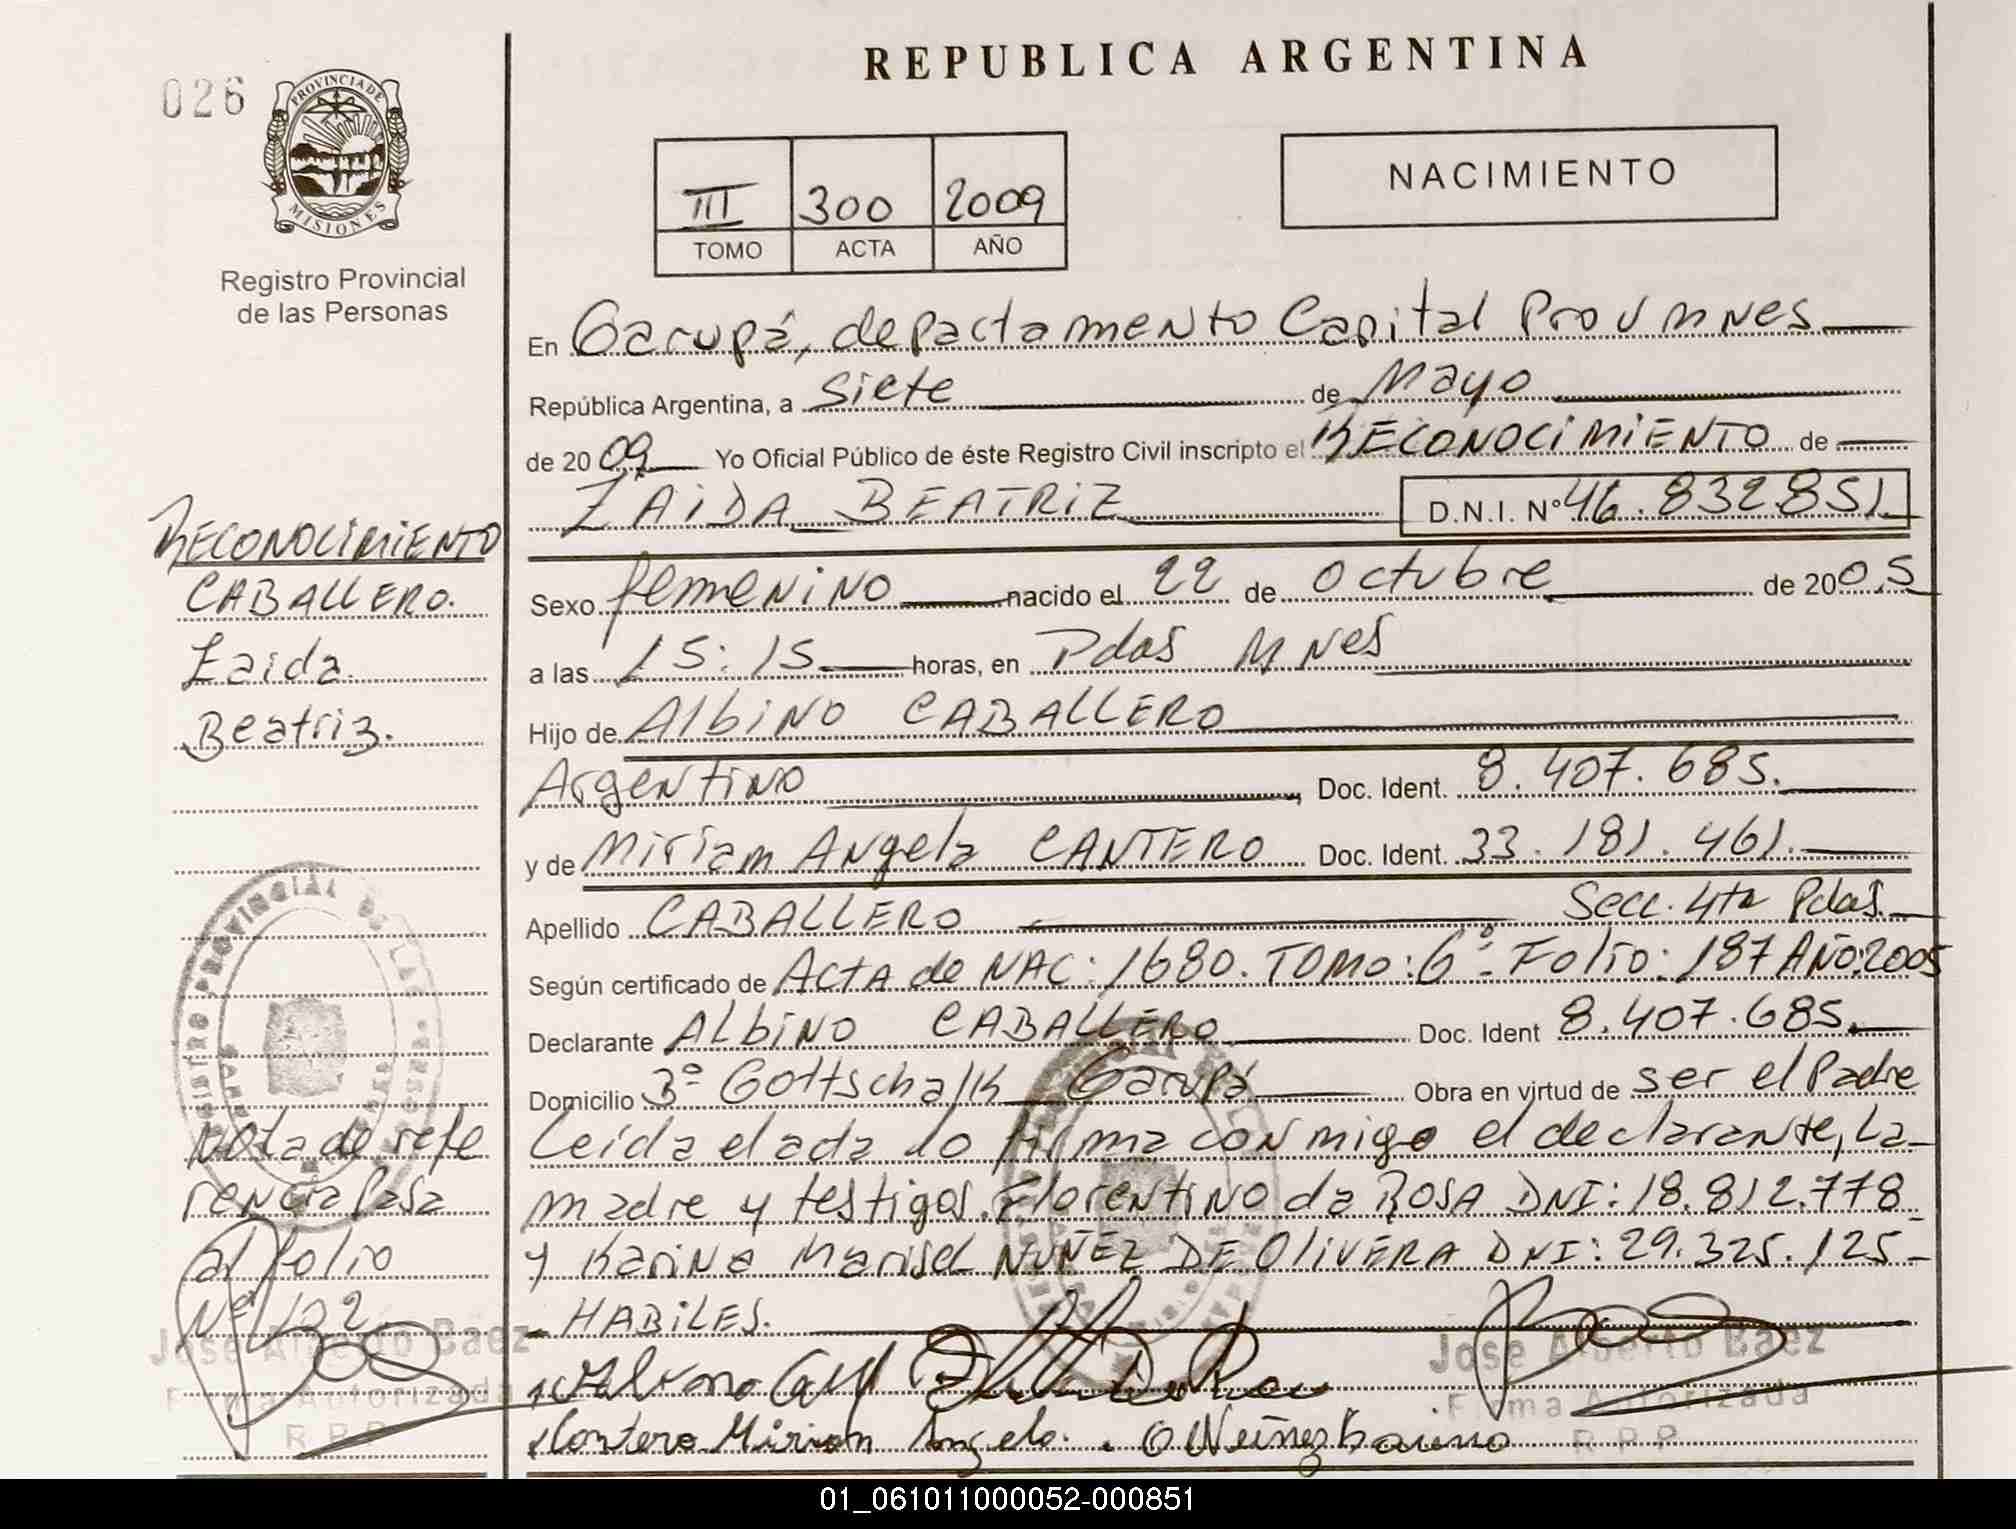 REPUBLICA ARGENTINA
026
PROVINCIA DE
MISIONES
Registro Provincial
de las Personas
III 300 2009
TOMO ACTA AÑO
NACIMIENTO
En Garupá, departamento Capital Prov Mnes
República Argentina, a siete de Mayo
de 2009 Yo Oficial Público de éste Registro Civil inscripto el RECONOCIMIENTO de
ZAIDA BEATRIZ D.N.I. Nº 46.832851
Sexo femenino nacido el 22 de octubre de 2005
a las 15:15 horas, en Pdas Mnes
Hijo de Albino CABALLERO
Argentino Doc. Ident. 8.407.685.
y de Miriam Angela CANTERO Doc. Ident. 33.181.461.
Apellido CABALLERO Secc. 4ta Pdas.
Según certificado de Acta de NAC: 1680. TOMO: 6º. Folio: 187 AÑO: 2005
Declarante Albino CABALLERO Doc. Ident 8.407.685.
Domicilio Bº Gottschalk Garupá Obra en virtud de ser el Padre
Leida el acta lo firma conmigo el declarante, La
madre y testigos. Florentino da ROSA DNI: 18.812.778
y Karina Marisel NUÑEZ DE OLIVERA DNI: 29.325.125
HABILES.
Cantero Miriam Angela.
RECONOCIMIENTO
CABALLERO.
Zaida
Beatriz.
REGISTRO PROVINCIAL DE LAS PERSONAS
Nota de refe
rencia Pasa
al folio
Nº 122.
Jose Alberto Baez
Firma Autorizada
R P P
Jose Alberto Baez
Firma Autorizada
R P P
01_061011000052-000851